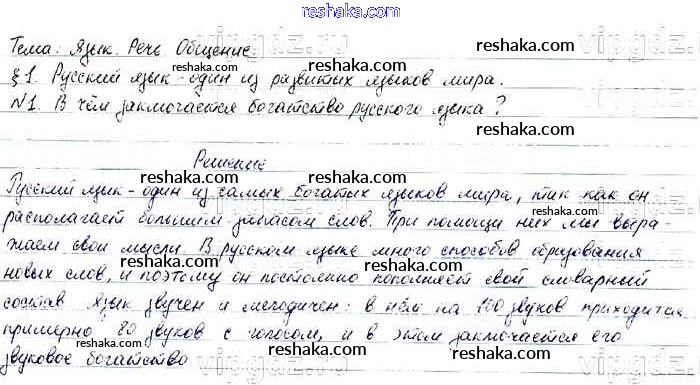 reshaka.com
Тема: Язык. Речь. Общение.
§1. Русский язык - один из развитых языков мира.
№1. В чём заключается богатство русского языка?
Решение
Русский язык - один из самых богатых языков мира, так как он
располагает большим запасом слов. При помощи них мы выра-
жаем свои мысли. В русском языке много способов образования
новых слов, и поэтому он постоянно пополняет свой словарный
состав. Язык звучен и мелодичен: в нём на 100 звуков приходится
примерно 80 звуков с голосом, и в этом заключается его
звуковое богатство